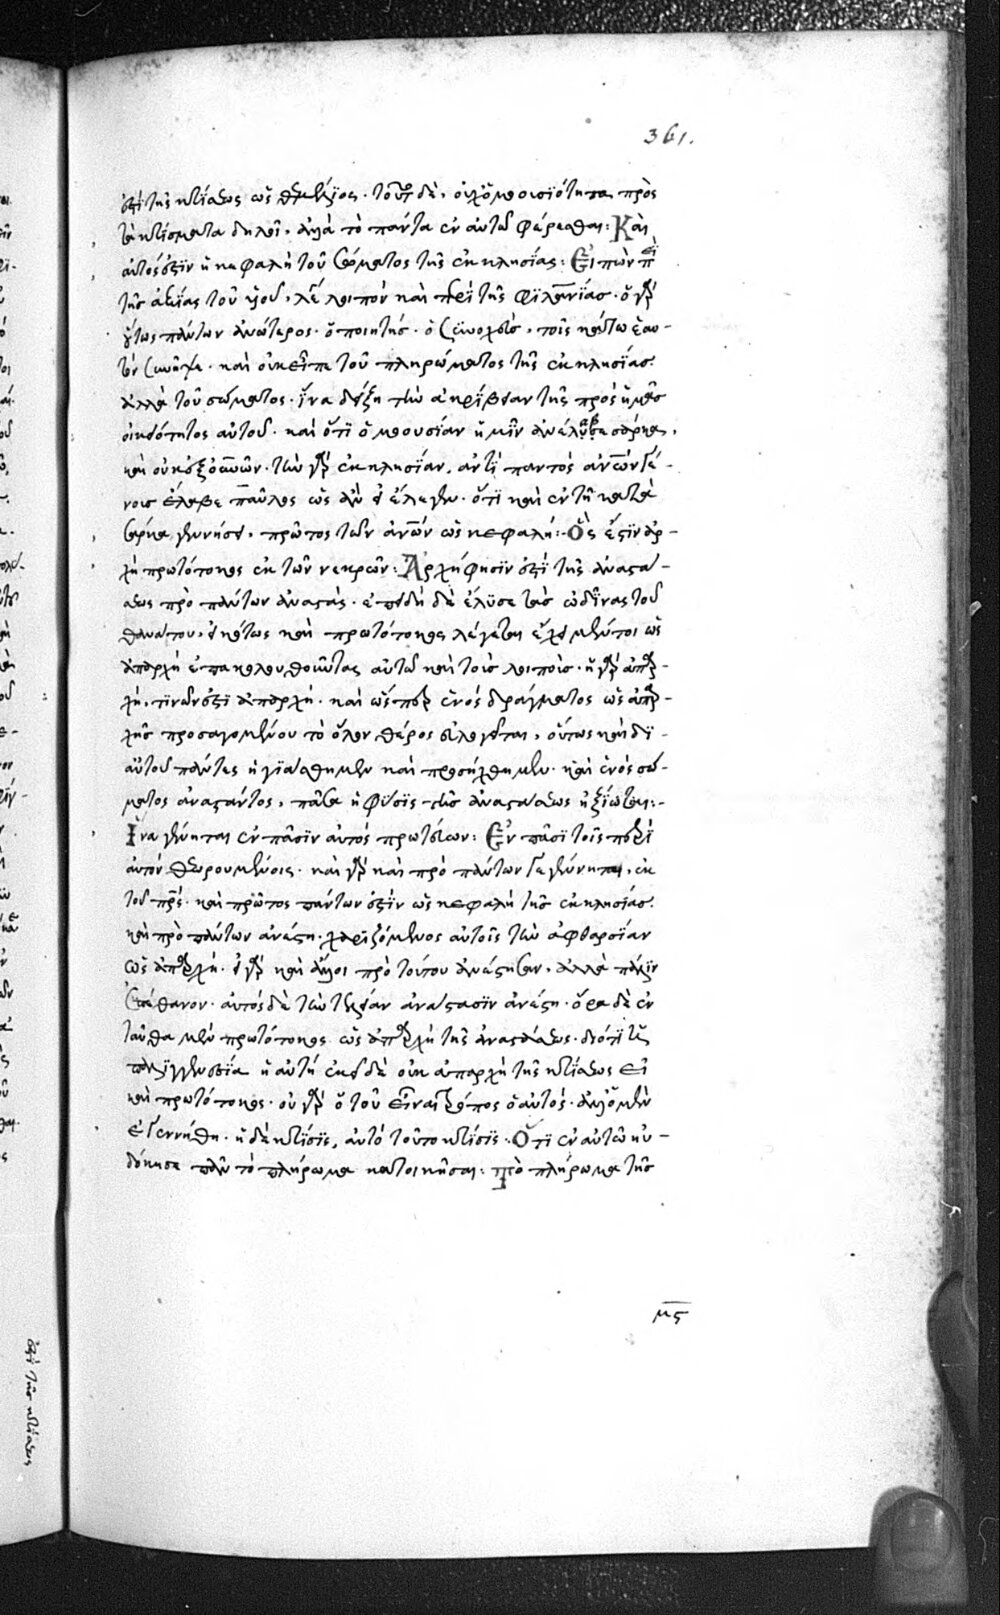 361.
ἐστὶ τῆς κτίσεως ὡς θεμέλιος. τοῦτο δὲ, οὐχ ὁμοουσιότητα πρὸς
τὰ κτίσματα δηλοῖ, ἀλλὰ τὸ πάντα ἐν αὐτῷ φέρεσθαι: Καὶ
αὐτός ἐστιν ἡ κεφαλὴ τοῦ σώματος τῆς ἐκκλησίας: Εἰπὼν περὶ
τῆς ἀξίας τοῦ υἱοῦ, λέγει λοιπὸν καὶ περὶ τῆς φιλανίας. ὁ γὰρ
οὕτως πάντων ἀνώτερος. ὁ ποιητής. ὁ τοῖς κάτω ἑαυ-
τὸν συνῆψε. καὶ οὐκ εἶπε τοῦ πληρώματος τῆς ἐκκλησίας.
ἀλλὰ τοῦ σώματος. ἵνα δείξη τὴν ἀκρίβειαν τῆς πρὸς ἡμᾶς
οἰκειότητος αὐτοῦ. καὶ ὅτι ὁμοουσίαν ἡμῖν ἀνέλαβε σάρκα,
καὶ οὐκ ἐξ οὐνῶν. τὴν γὰρ ἐκκλησίαν, ἀντὶ παντὸς ἀνῶν γέ-
νους ἔλαβε παῦλος ὡς ἂν εἰ ἔλεγεν. ὅτι καὶ ἐν τῇ κατὰ
σάρκα γεννήσει, πρῶτος τῶν ἀνῶν ὡς κεφαλή: Ὅς ἐστιν ἀρ-
χὴ πρωτότοκος ἐκ τῶν νεκρῶν: Ἀρχή φησιν ἐστὶ τῆς ἀναστά-
σεως πρὸ πάντων ἀναστάς. ἐπειδὴ δὲ ἔλυσε τὰς ὠδῖνας τοῦ
θανάτου, εἰκότως καὶ πρωτότοκος λέγεται ἔχει μέντοι ὡς
ἀπαρχὴ ἐπακολουθοῦντας αὐτῷ καὶ τοὺς λοιπούς. ἡ γὰρ ἀπαρ-
χή, τινῶν ἐστὶ ἀπαρχή. καὶ ὥσπερ ἑνὸς δράγματος ὡς ἀπαρ-
χῆς προσαγομένου τὸ ὅλον θέρος εὐλογεῖται, οὕτως καὶ δι-
αὐτοῦ πάντες ἡγιάσθημεν καὶ προσήχθημεν. καὶ ἑνὸς σώ-
ματος ἀναστάντος, πᾶσα ἡ φύσις τῆς ἀναστάσεως ἠξίωται:-
Ἵνα γένηται ἐν πᾶσιν αὐτὸς πρωτεύων: Ἐν πᾶσι τοῖς περὶ
αὐτὸν θεωρουμένοις. καὶ γὰρ καὶ πρὸ πάντων γεγέννηται, ἐκ
τοῦ πρς. καὶ πρῶτος πάντων ἐστὶν ὡς κεφαλὴ τῆς ἐκκλησίας.
καὶ πρὸ πάντων ἀνέστη. χαριζόμενος αὐτοῖς τὴν ἀφθαρσίαν
ὡς ἀπαρχή. εἰ γὰρ καὶ ἄλλοι πρὸ τούτου ἀνέστησαν, ἀλλὰ πάλιν
ἀπέθανον. αὐτὸς δὲ τὴν τελείαν ἀνάστασιν ἀνέστη. ὅρα δὲ ἐν
ταῦθα μὲν πρωτότοκος ὡς ἀπαρχὴ τῆς ἀναστάσεως. διότι
παλιγγενεσία ἡ αὐτή ἐκεῖ δὲ οὐκ ἀπαρχὴ τῆς κτίσεως εἰ
καὶ πρωτότοκος. οὐ γὰρ ὁ τοῦ εἶναι τρόπος ὁ αὐτός. ἀλλ' ὁ μὲν
ἐγεννήθη. ἡ δὲ κτίσις, αὐτὸ τοῦτο κτίσις: Ὅτι ἐν αὐτῷ ηὐ-
δόκησε πᾶν τὸ πλήρωμα κατοικῆσαι: τὸ πλήρωμα τῆς
μς
ἐστὶ τῆς κτίσεως